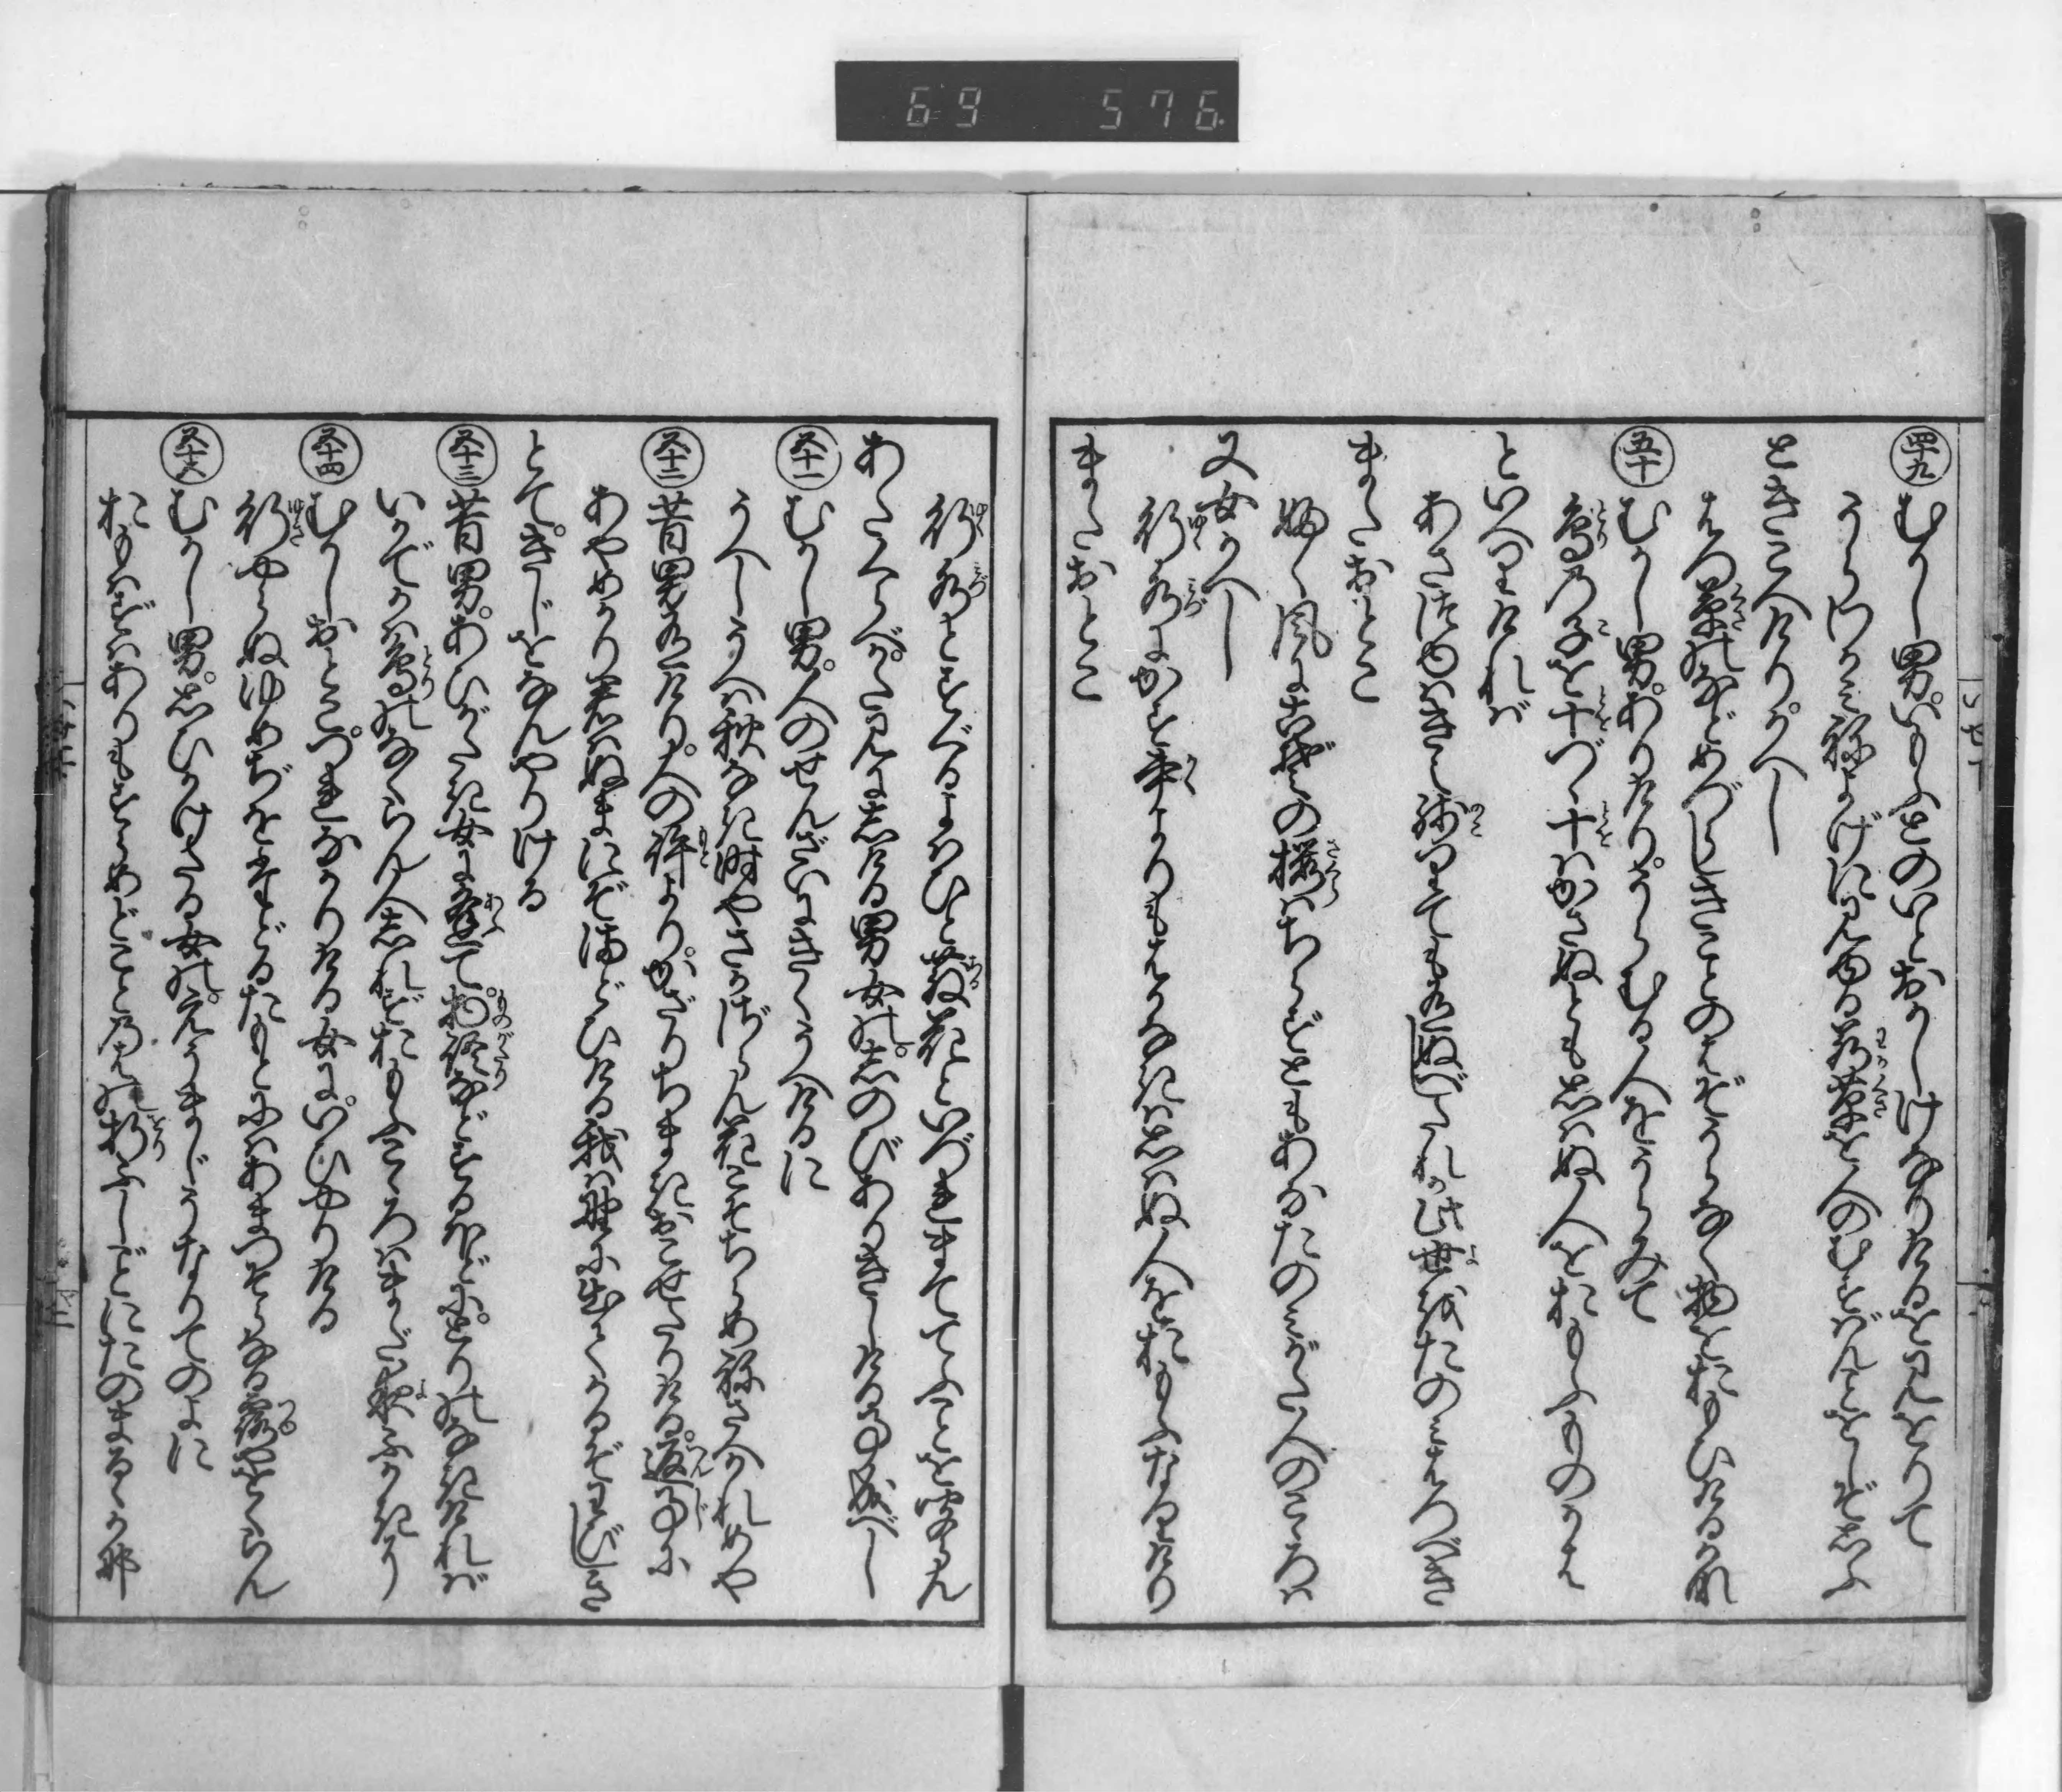 69 576
四十九 むかし男。いもうとのいとおかしげなりけるを見をりて
うらわかみ称よげに見ゆる若草を人のむすばんことをしぞ思ふ
ときこへけり。かへし
はつ草のなどめづらしきことのはぞうらなく物をおもひけるかな
五十 むかし男。ありけり。うらむる人をうらみて
鳥の子を十づゝ十はかさぬとも思はぬ人をおもふものかは
といへりければ
あさ露はきえ残りても有ぬべしたれか此世をたのみはつべき
またおとこ
吹風にこぞの桜はちらずともあなたのみがた人のこゝろは
又女かへし
行水にかず書よりもはかなきは思はぬ人をおもふなりけり
またおとこ
行水とすぐるよはひと散花といづれまててふことを聞らん
あだくらべかたみにしける男女の。しのびありきしける事成べし
五十一 むかし男。人のせんざいにきくうへけるに
うへしうへば秋なき時やさかざらん花こそちらめ称さへかれめや
五十二 昔男有けり。人の許より。かざりちまきおこせたりける。返事に
あやめかり君はぬまにぞまどひける我は野に出てかるぞわびしき
とて。きじをなんやりける
五十三 昔男。あひがたき女に逢て。物語などするほどに。とりのなきければ
いかでかは鳥のなくらん人しれずおもふこゝろはまだ夜ふかきに
五十四 むかしおとこ。つれなかりける女に。いひやりける
行やらぬゆめぢをたどるたもとにはあまつそらなる露やをくらん
五十五 むかし男。思ひかけたる女の。えうまじうなりてのよに
おもはずはありもすらめどことの葉の折ふしごとにたのまるゝかな